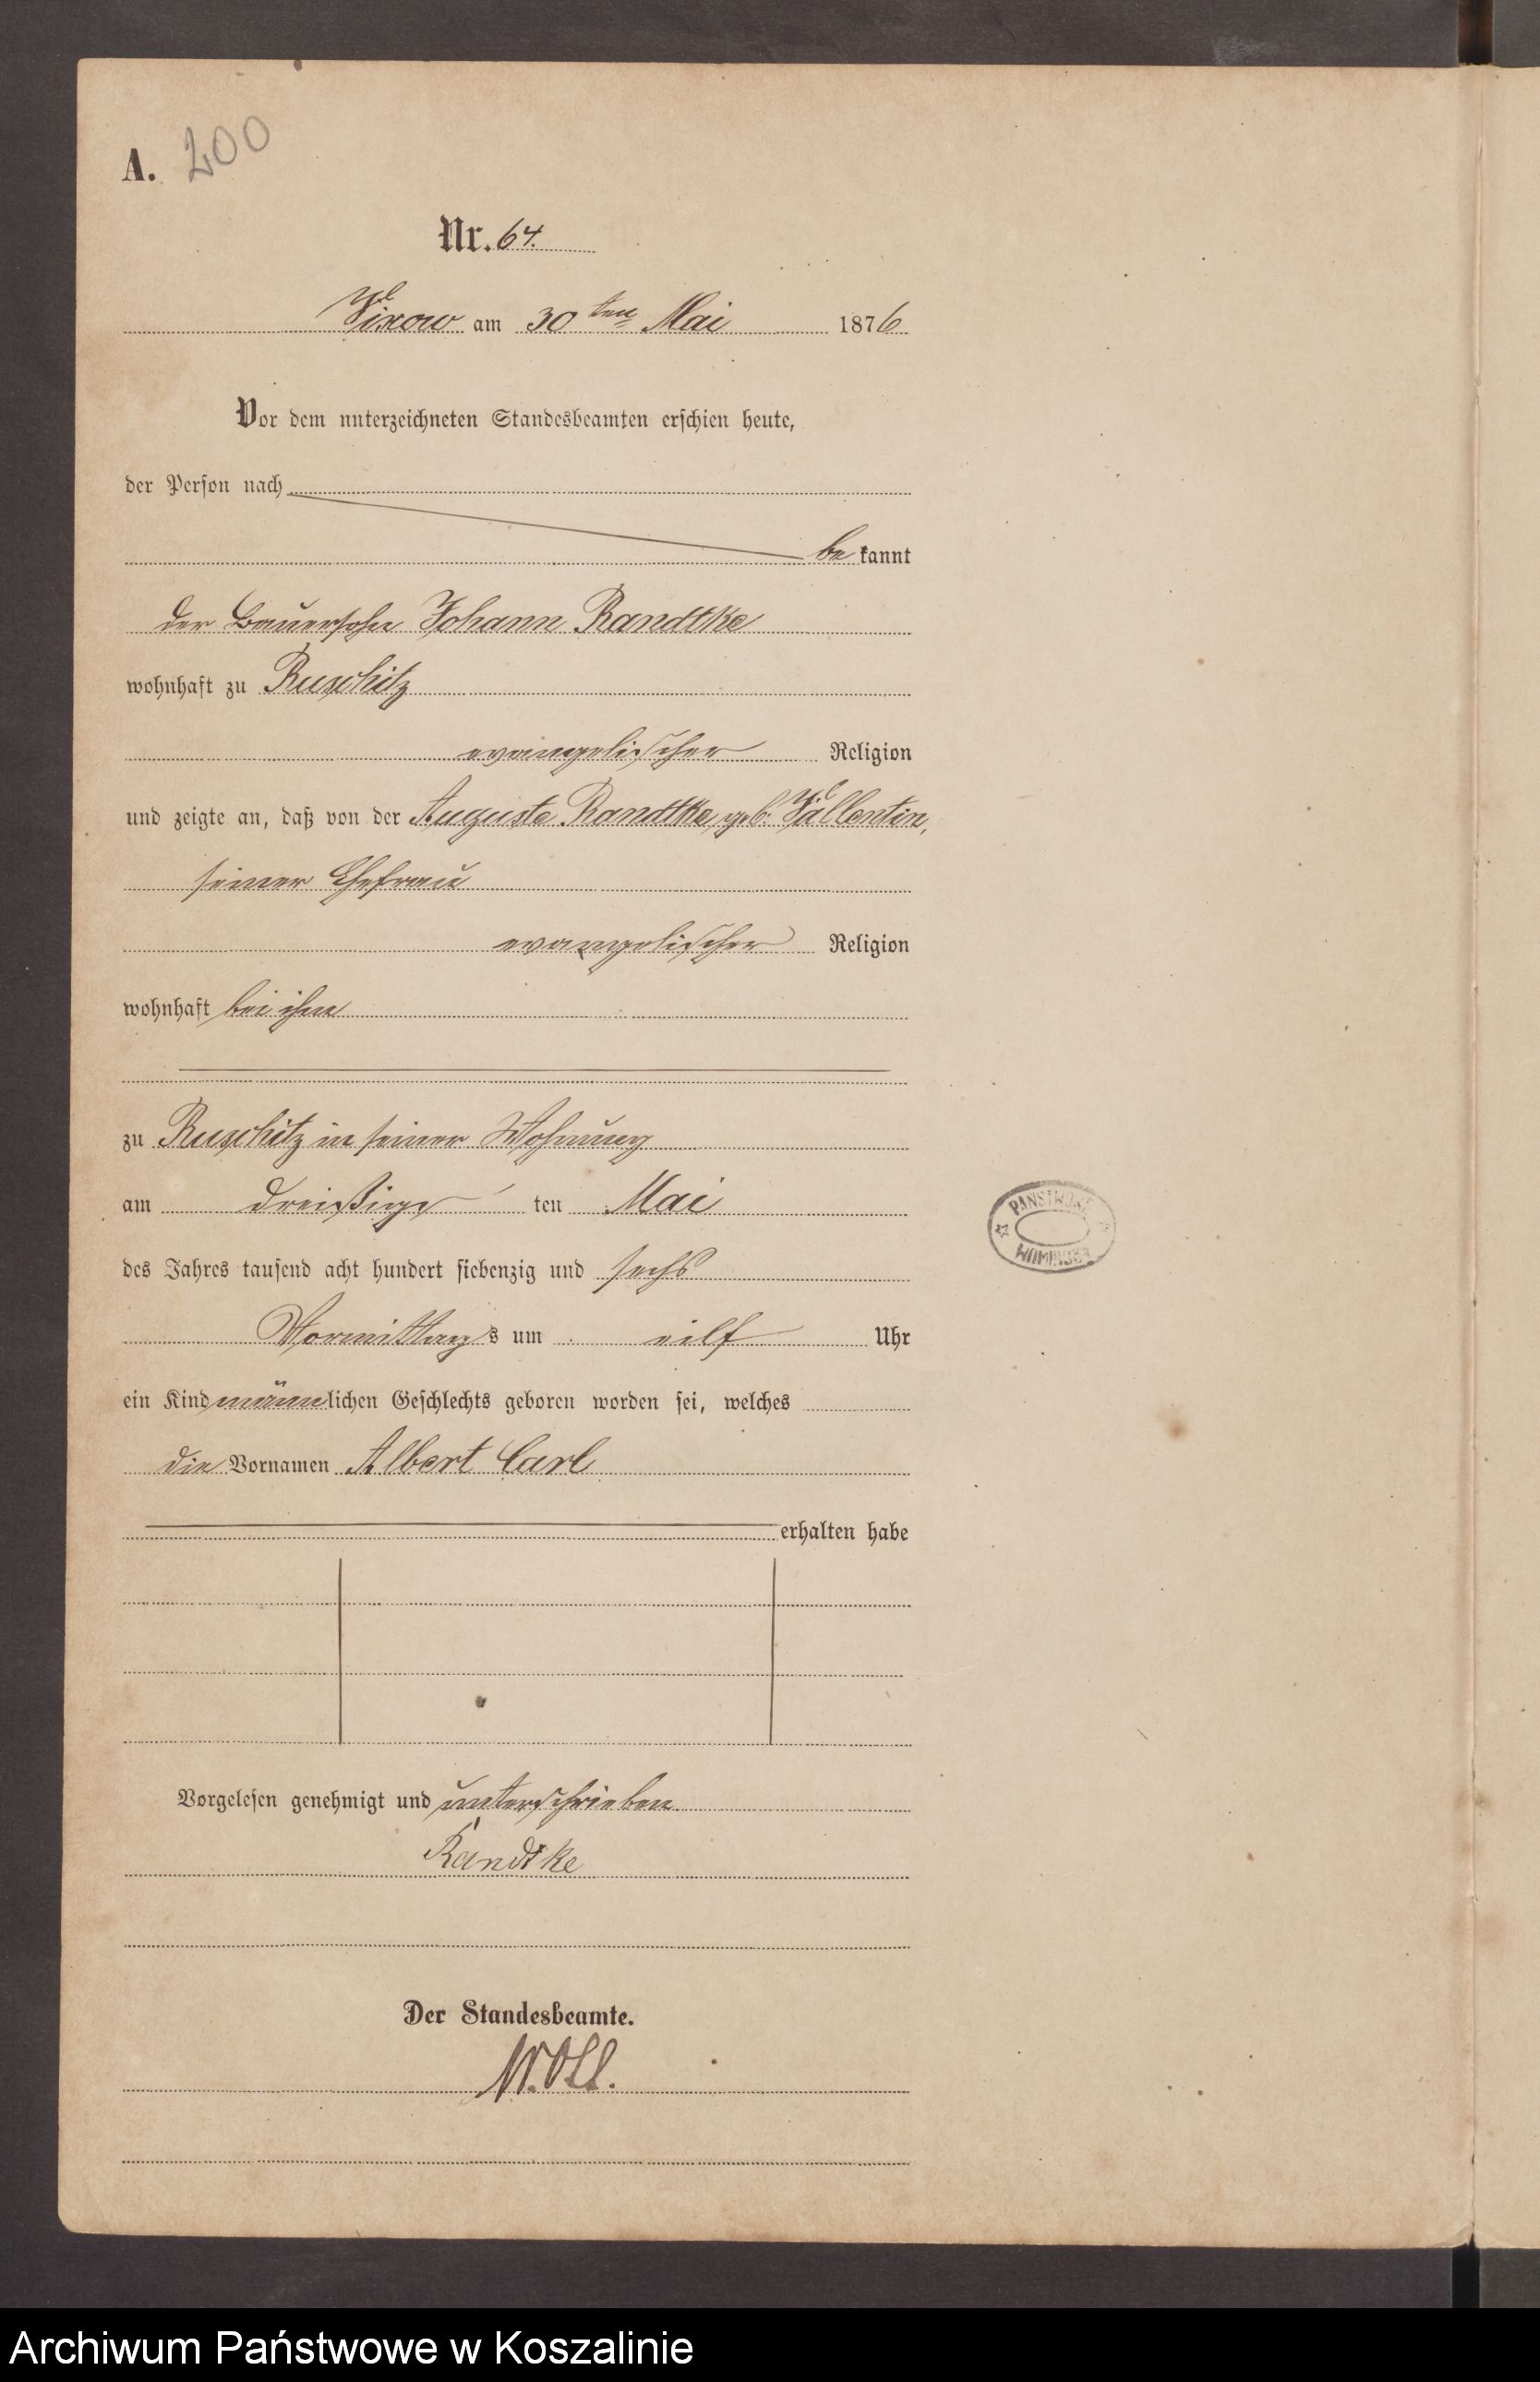 A. 200
Nr. 64.
Vixow am 30ten Mai 1876
Vor dem unterzeichneten Standesbeamten erschien heute,
der Person nach
be kannt
der Bauersohn Johann Randtke
wohnhaft zu Ruschitz
evangelischer Religion
und zeigte an, daß von der Auguste Randtke geb. Vällentin,
seiner Ehefrau
evangelischer Religion
wohnhaft bei ihm
zu Ruschitz in seiner Wohnung
am dreißigs ten Mai
des Jahres tausend acht hundert siebenzig und sechs
Vormittags um eilf Uhr
ein Kind männlichen Geschlechts geboren worden sei, welches
die Vornamen Albert Carl
erhalten habe
Vorgelesen genehmigt und unterschrieben
Randtke
Der Standesbeamte.
PAŃSTWOWE
ARCHIWUM
Archiwum Państwowe w Koszalinie